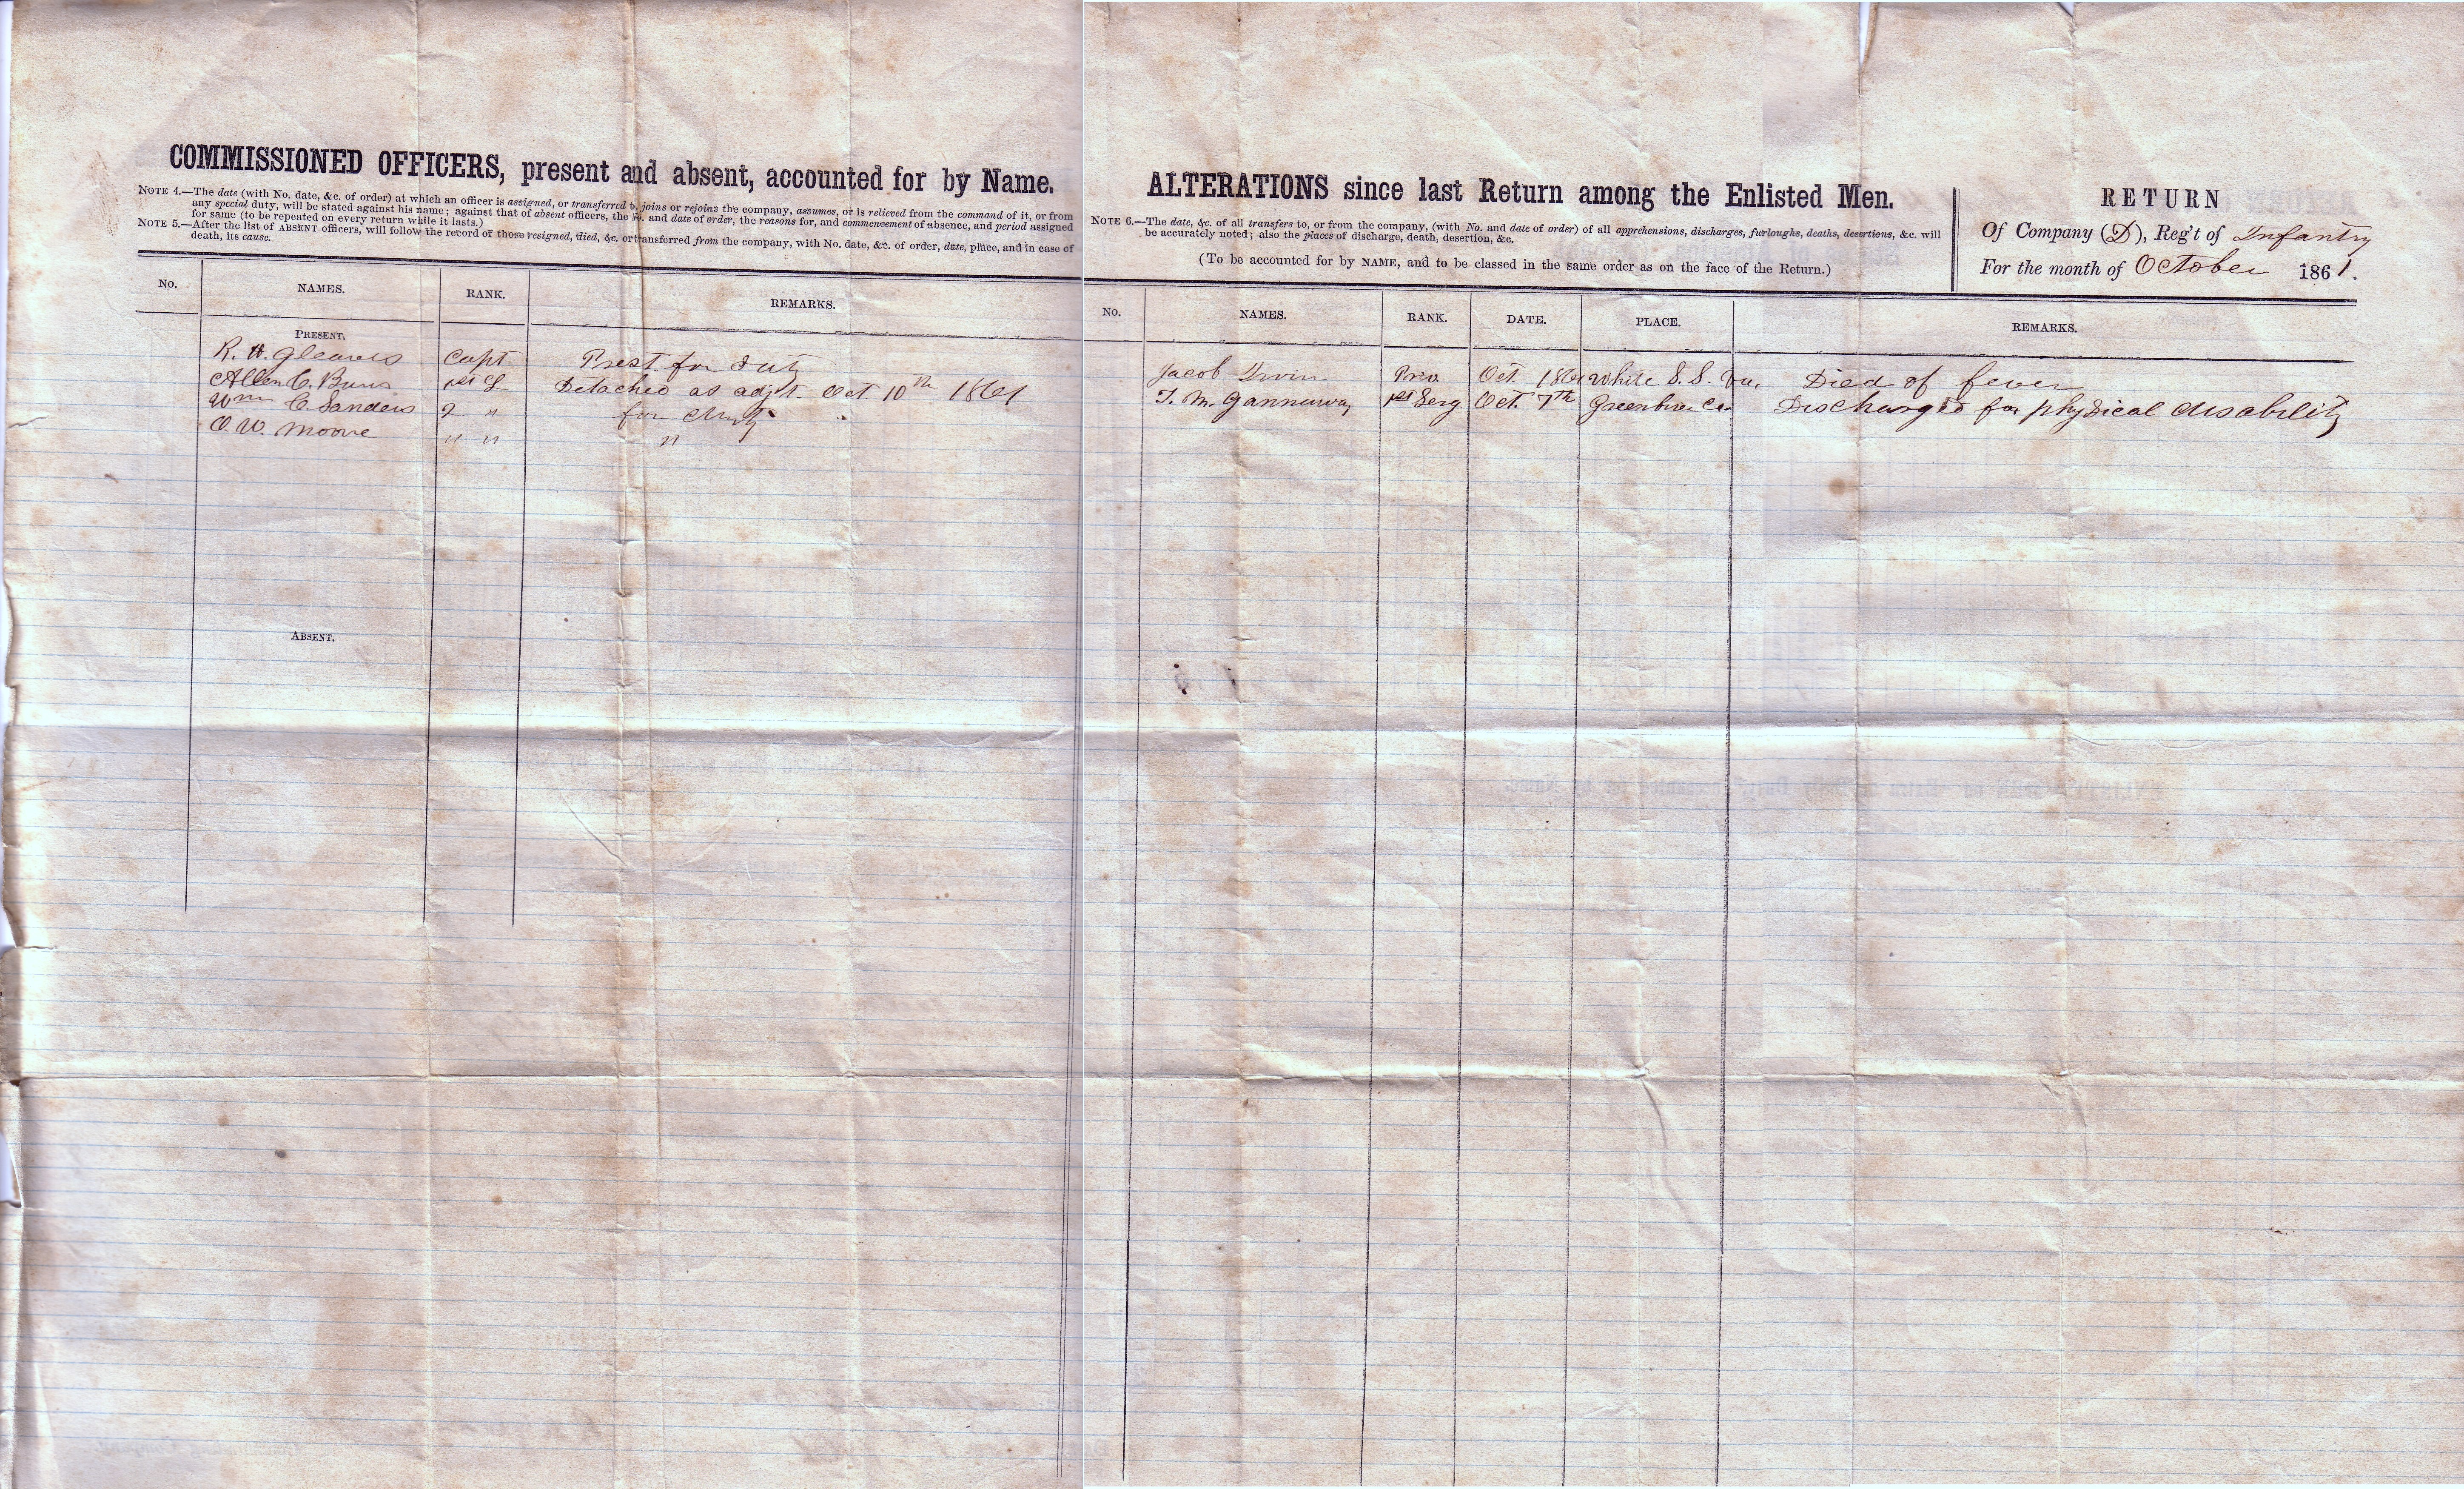 COMMISSIONED OFFICERS, present and absent, accounted for by Name.
NOTE 4.—The date (with No. date, &c. of order) at which an officer is assigned, or transferred to, joins or rejoins the company, assumes, or is relieved from the command of it, or from
any special duty, will be stated against his name; against that of absent officers, the No. and date of order, the reasons for, and commencement of absence, and period assigned
for same (to be repeated on every return while it lasts.)
NOTE 5.—After the list of ABSENT officers, will follow the record of those resigned, died, &c. or transferred from the company, with No. date, &c. of order, date, place, and in case of
death, its cause.
No. NAMES. RANK. REMARKS.
PRESENT,
R. H. Gleaves Capt Prest for Duty
Allen C. 1st L Detached as adjt. Oct 10th 1861
Wm C. Sanders 2 " for Duty
O. W. Moore " " "
ABSENT.
ALTERATIONS since last Return among the Enlisted Men.
NOTE 6.—The date, &c. of all transfers to, or from the company, (with No. and date of order) of all apprehensions, discharges, furloughs, deaths, desertions, &c. will
be accurately noted; also the places of discharge, death, desertion, &c.
(To be accounted for by NAME, and to be classed in the same order as on the face of the Return.)
RETURN
Of Company (D), Reg't of Infantry
For the month of October 1861.
No. NAMES. RANK. DATE. PLACE. REMARKS.
Jacob Irvin Priv Oct. 1861 White S. S. Va. Died of fever
T. M. Gannaway 1st Serg Oct. 7th Greenbrier Co. Discharged for physical disability